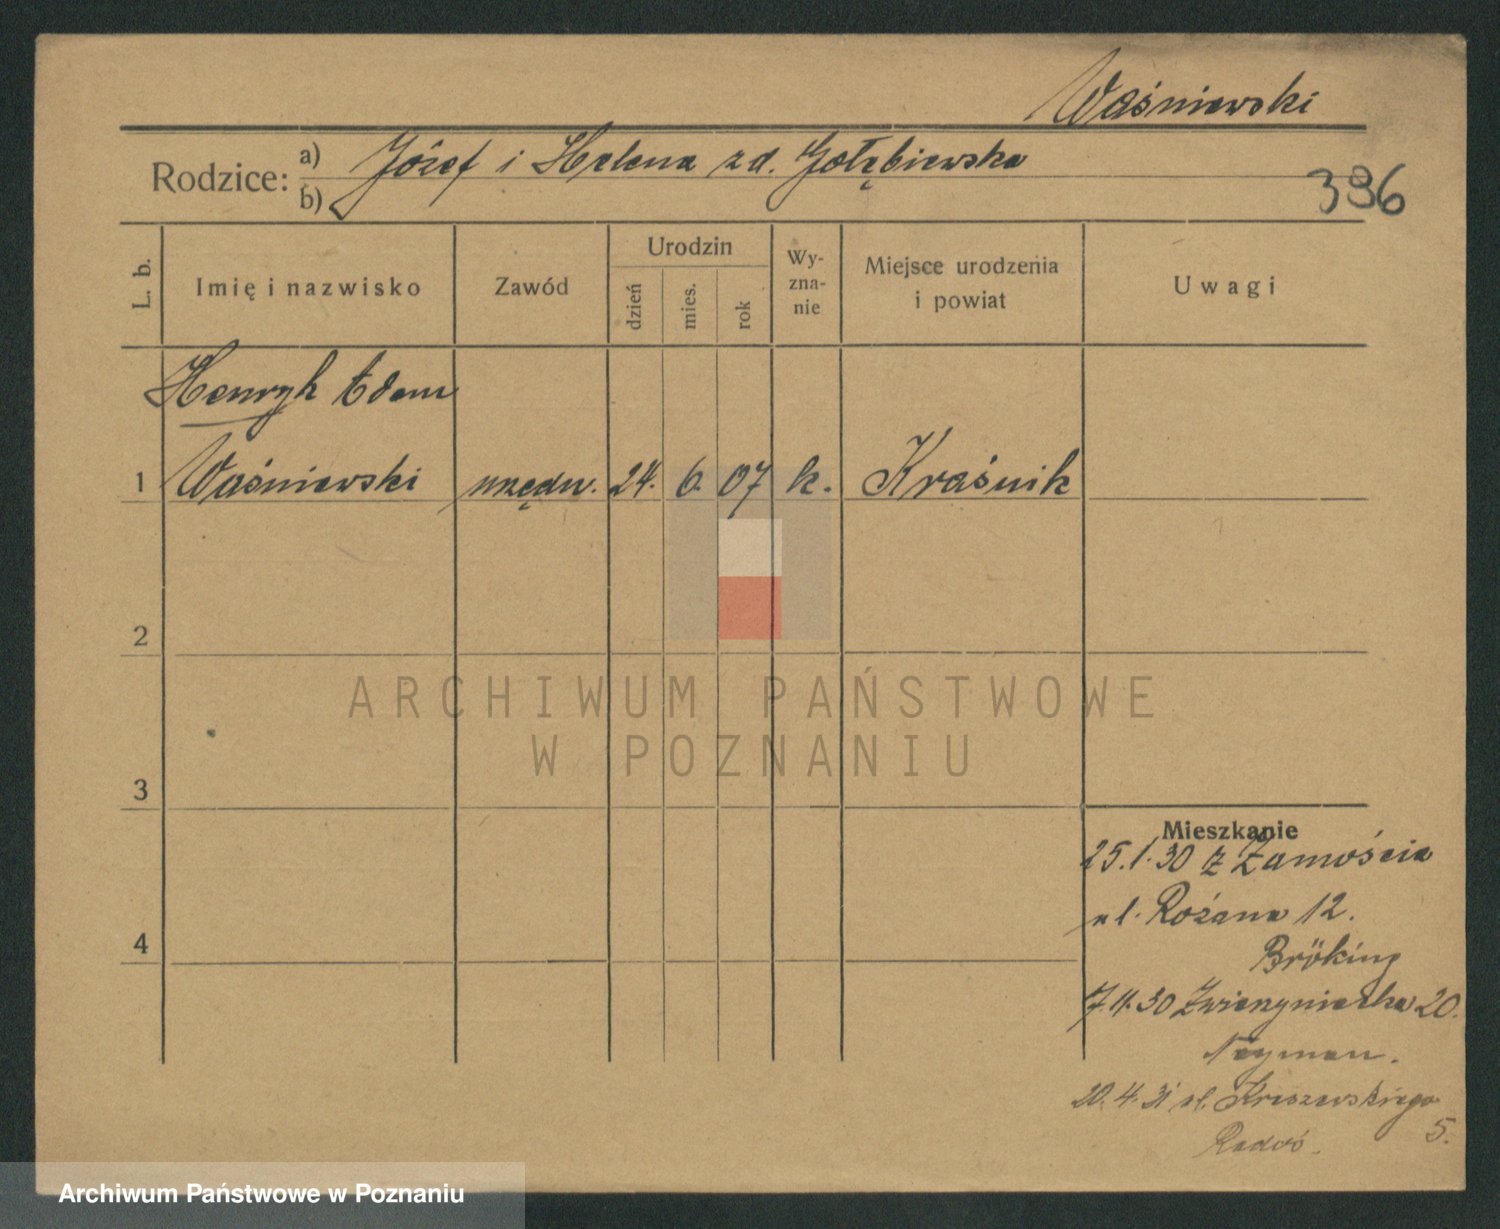 Waśniewski
Rodzice: a) Józef i Helena z d. Gołębiewska
b)
396
L. b.
Imię i nazwisko
Zawód
Urodzin
dzień
mies.
rok
Wy-
zna-
nie
Miejsce urodzenia
i powiat
Uwagi
Henryk Adam
1 Waśniewski urzędn. 24. 6. 07 k. Kraśnik
2
3
4
Mieszkanie
25.1.30 z Zamościa
ul. Różana 12.
Bröking
7.11.30 Zwierzyniecka 20.
Neyman.
20.4.31 ul. Kraszewskiego
5.
ARCHIWUM PAŃSTWOWE
W POZNANIU
Archiwum Państwowe w Poznaniu